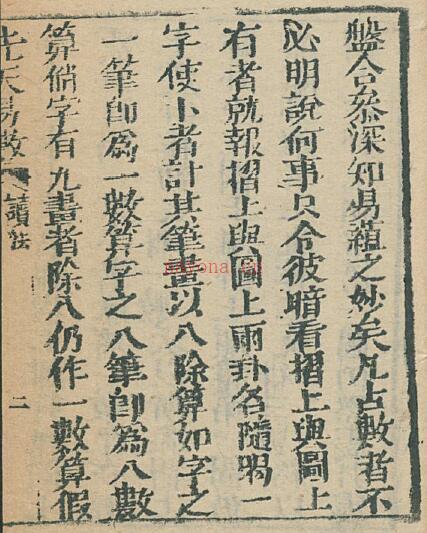 盤合叅深知易蘊之妙矣凡占數者不
必明說何事只令彼暗看摺上與圖上
有者就報摺上與圖上兩卦名隨喝一
字使卜者計其筆畫以八除算如字之
一筆卽爲一數算字之八筆卽爲八數
算倘字有九畫者除八仍作一數算假
先天易數 讀法 二